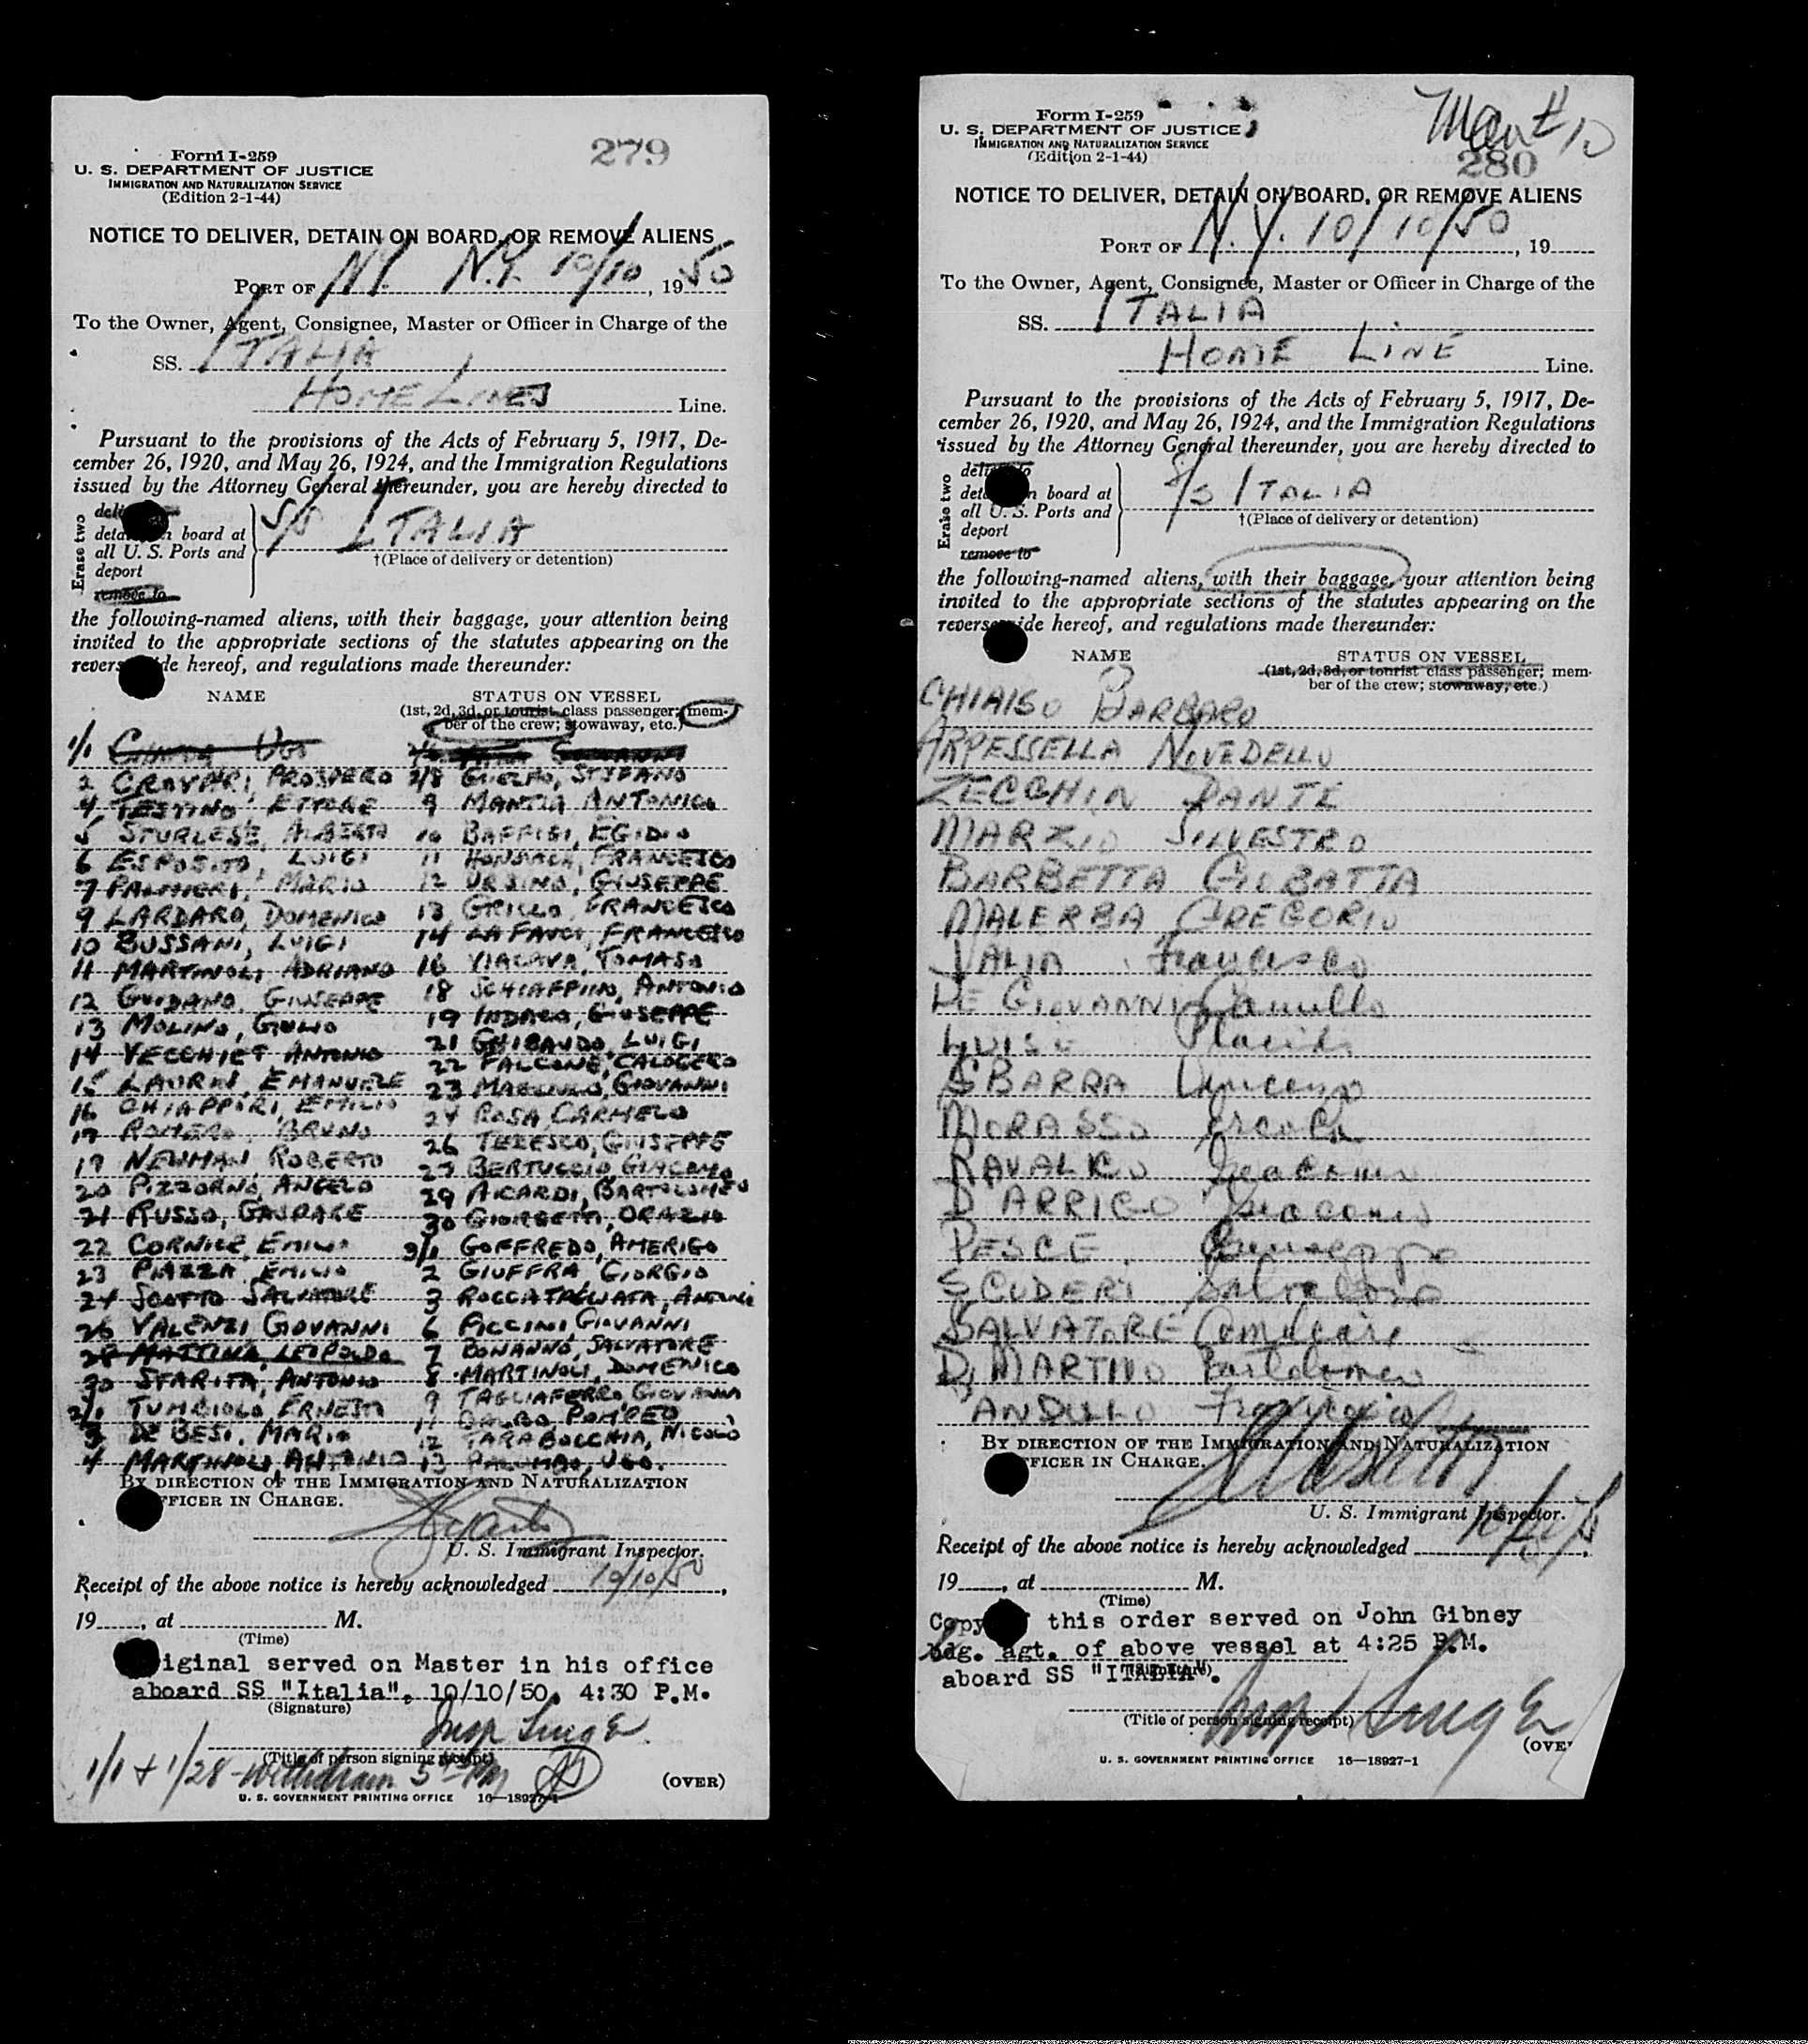 279
Form I-259
U. S. DEPARTMENT OF JUSTICE
IMMIGRATION AND NATURALIZATION SERVICE
(Edition 2-1-44)
NOTICE TO DELIVER, DETAIN ON BOARD, OR REMOVE ALIENS
PORT OF N.Y. N.Y. 10/10, 1950
To the Owner, Agent, Consignee, Master or Officer in Charge of the
SS. ITALIA
HOME LINES Line.
Pursuant to the provisions of the Acts of February 5, 1917, De-
cember 26, 1920, and May 26, 1924, and the Immigration Regulations
issued by the Attorney General thereunder, you are hereby directed to
Erase two
board at
all U. S. Ports and
deport
remove to
S/S ITALIA
†(Place of delivery or detention)
the following-named aliens, with their baggage, your attention being
invited to the appropriate sections of the statutes appearing on the
hereof, and regulations made thereunder:
NAME STATUS ON VESSEL
(1st, 2d, 3d, or tourist class passenger; mem-
ber of the crew; stowaway, etc.)
1/1 UGO
2 CROVARI, PROSPERO 2/8 GUELFO, STEFANO
4 TESTINO, ETTORE 9 MANTIA ANTONIO
5 STURLESE, ALBERTO 10 BAFFIGI, EGIDIO
6 ESPOSITO, LUIGI 11 FRANCESCO
7 PALMIERI, MARIO 12 URSINO, GIUSEPPE
9 LARDARO, DOMENICO 13 GRILLO, FRANCESCO
10 BUSSANI, LUIGI 14 LA FAUCI, FRANCESCO
11 MARTINOLI, ADRIANO 16 VIACAVA, TOMASO
12 GUIDANO, GIUSEPPE 18 SCHIAFFINO, ANTONIO
13 MOLINO, GIULIO 19 INDACO, GIUSEPPE
14 VECCHIET ANTONIO 21 GHIBAUDO, LUIGI
15 EMANUELE 22 FALCONE, CALOGERO
16 CHIAPPORI, EMILIO 23 GIOVANNI
17 ROMERO, BRUNO 24 ROSA CARMELO
19 NEWMAN, ROBERTO 26 TEDESCO, GIUSEPPE
20 PIZZORNO, ANGELO 27 BERTUCCIO, GIACOMO
21 RUSSO, GASPARE 29 AICARDI, BARTOLOMEO
22 CORNICE, EMILIO 30 GIORGETTI, ORAZIO
23 PIAZZA, EMILIO 3/1 GOFFREDO, AMERIGO
24 SCOTTO SALVATORE 2 GIUFFRA, GIORGIO
26 VALENZI, GIOVANNI 3 ROCCATAGLIATA, ANTONIO
28 MATTINA, LEOPOLDO 6 PICCINI, GIOVANNI
30 STARITA, ANTONIO 7 BONANNO, SALVATORE
2/1 TUMBIOLO ERNESTO 8 MARTINOLI, DOMENICO
3 DE BESI, MARIO 9 TAGLIAFERRO, GIOVANNI
4 MARTINOLI ANTONIO 11 BALBO POMPEO
12 TARABOCCHIA, NICOLO
13 PALUMBO, UGO.
BY DIRECTION OF THE IMMIGRATION AND NATURALIZATION
OFFICER IN CHARGE.
U. S. Immigrant Inspector.
Receipt of the above notice is hereby acknowledged 10/10/50,
19, at M.
(Time)
iginal served on Master in his office
aboard SS "Italia", 10/10/50. 4:30 P.M.
(Signature)
(Title of person signing receipt)
1/1 + 1/28 - withdrawn 5 PM
(OVER)
U. S. GOVERNMENT PRINTING OFFICE 16—18927-1
280
Form I-259
U. S. DEPARTMENT OF JUSTICE
IMMIGRATION AND NATURALIZATION SERVICE
(Edition 2-1-44)
NOTICE TO DELIVER, DETAIN ON BOARD, OR REMOVE ALIENS
PORT OF N.Y. 10/10/50, 19
To the Owner, Agent, Consignee, Master or Officer in Charge of the
SS. ITALIA
HOME LINE Line.
Pursuant to the provisions of the Acts of February 5, 1917, De-
cember 26, 1920, and May 26, 1924, and the Immigration Regulations
issued by the Attorney General thereunder, you are hereby directed to
Erase two
board at
all U. S. Ports and
deport
remove to
S/S ITALIA
†(Place of delivery or detention)
the following-named aliens, with their baggage, your attention being
invited to the appropriate sections of the statutes appearing on the
hereof, and regulations made thereunder:
NAME STATUS ON VESSEL
(1st, 2d, 3d, or tourist class passenger; mem-
ber of the crew; stowaway, etc.)
CHIAISO BARBARO
ARPESSELLA NOVEDELLO
ZECCHIN DANTE
MARZIO SILVESTRO
BARBETTA GIOBATTA
MALERBA GREGORIO
VALIA Francesco
DE GIOVANNI Camillo
LUISE Placido
SBARRA Vincenzo
MORASSO Ercole
RAVALICO Giacomo
D'ARRICO Giacomo
PESCE Giuseppe
SCUDERI Salvatore
SALVATORE
DI MARTINO Bartolomeo
Francesco
BY DIRECTION OF THE IMMIGRATION AND NATURALIZATION
OFFICER IN CHARGE.
U. S. Immigrant Inspector.
Receipt of the above notice is hereby acknowledged
19, at M.
(Time)
Copy this order served on John Gibney
bdg. agt. of above vessel at 4:25 P.M.
aboard SS "ITALIA".
(Signature)
(Title of person signing receipt)
(OVE
U. S. GOVERNMENT PRINTING OFFICE 16—18927-1